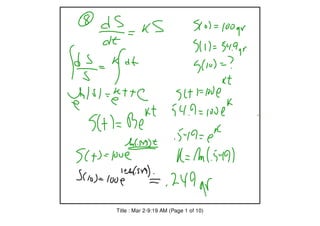 ⑧ dS/dt = KS
S(0)=100gr
S(1)=54.9gr
S(10)=?
∫ dS/S = K∫dt
ln|S| = Kt+C
e e
S(t)=Be^kt
S(t)=100e^kt
54.9=100e^k
.549=e^k
K=ln(.549)
S(t)=100e^ln(.549)t
S(10)=100e^10ln(.549) = .249gr
Title : Mar 2-9:19 AM (Page 1 of 10)